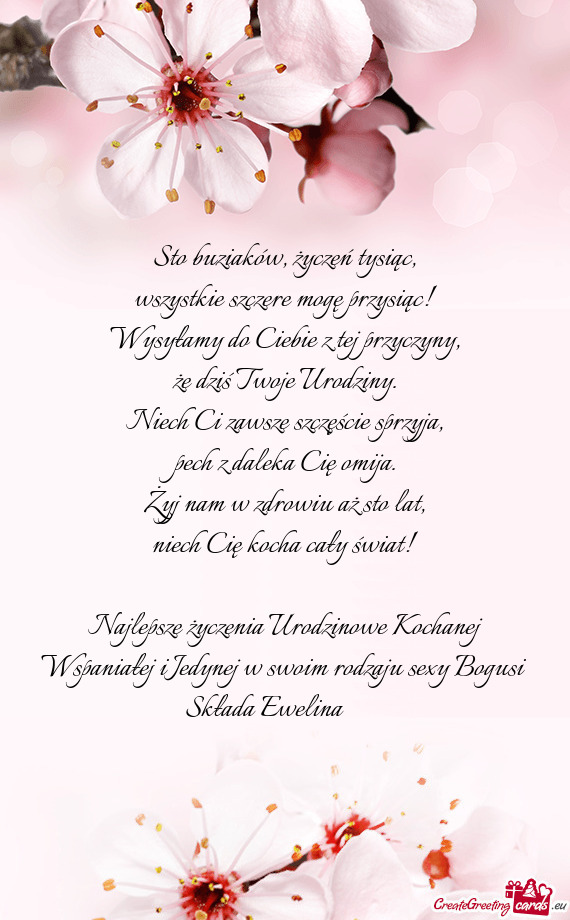 Sto buziaków, życzeń tysiąc,
wszystkie szczere mogę przysiąc!
Wysyłamy do Ciebie z tej przyczyny,
że dziś Twoje Urodziny.
Niech Ci zawsze szczęście sprzyja,
pech z daleka Cię omija.
Żyj nam w zdrowiu aż sto lat,
niech Cię kocha cały świat!
Najlepsze życzenia Urodzinowe Kochanej
Wspaniałej i Jedynej w swoim rodzaju sexy Bogusi
Składa Ewelina
CreateGreeting cards .eu